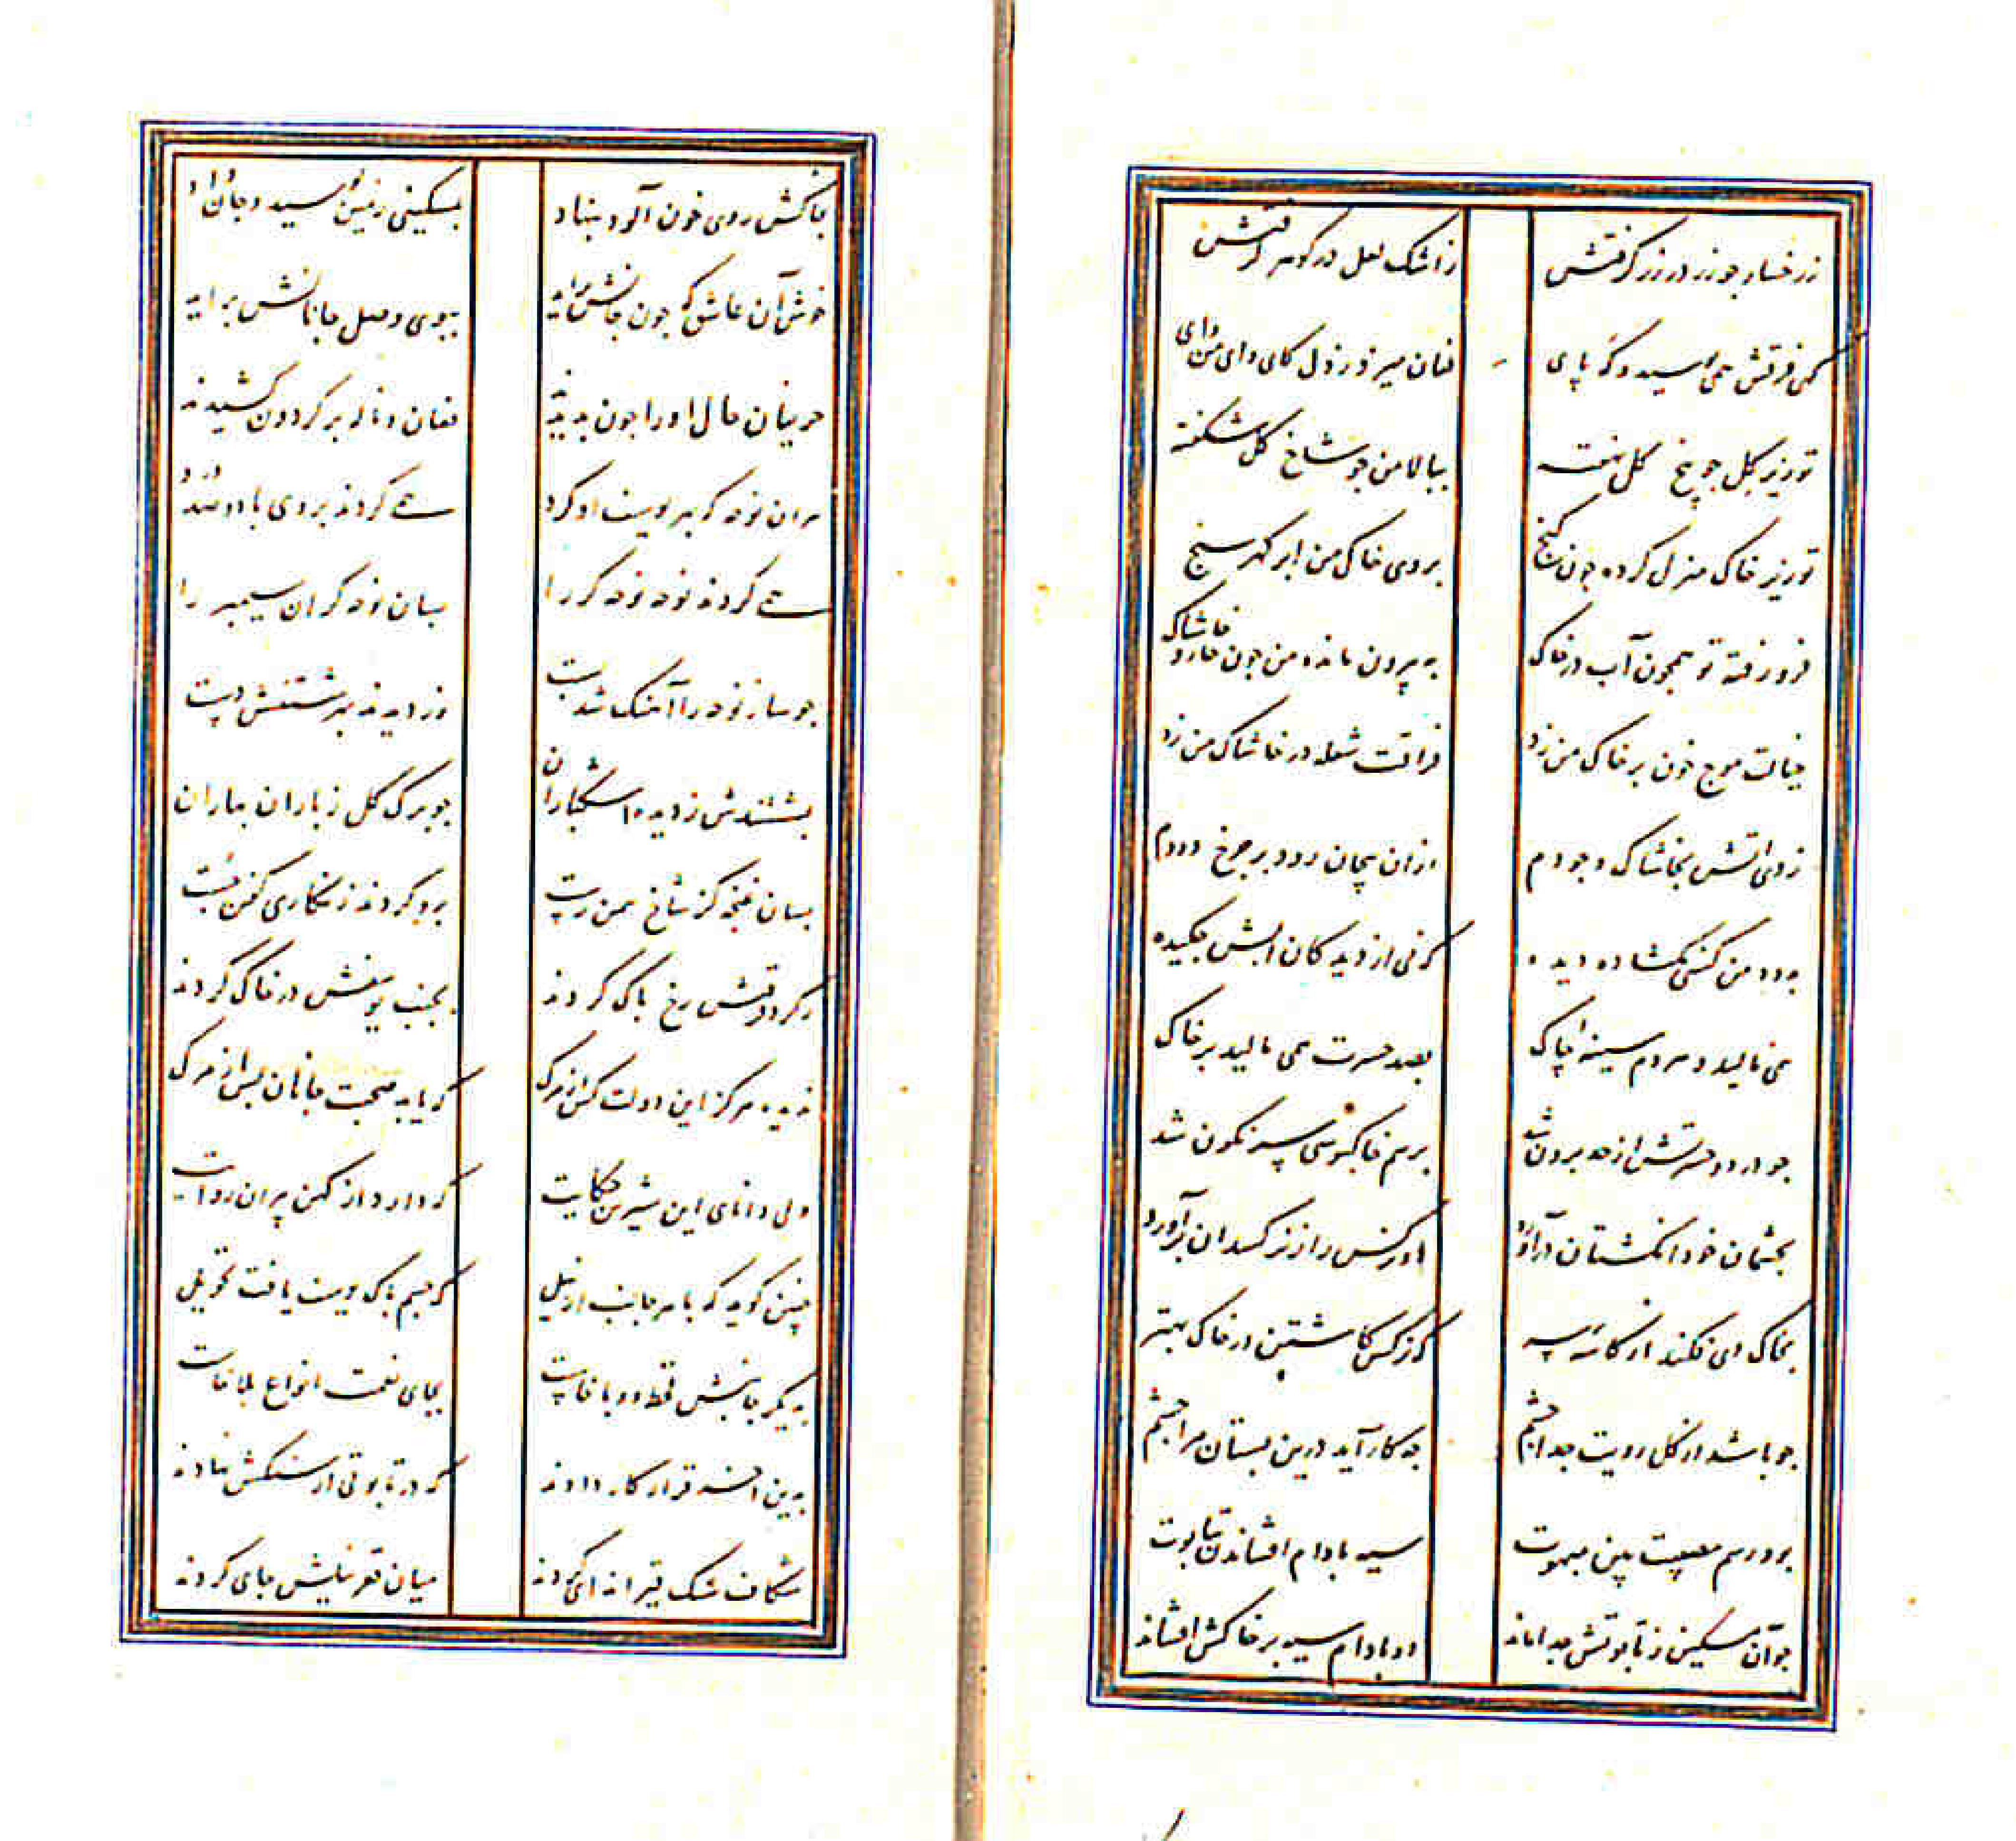 ز رخسار چو زر در زر گرفتش ز اشک لعل در گوهر گرفتش
گهی فرقش همی بوسید و گه پای فغان میزد ز دل کای وای من وای
تو زیر گل چو بیخ گل نهفته ببالا من چو شاخ گل شکفته
تو زیر خاک منزل کرده چون گنج بروی خاک من ابر گهر سنج
فرو رفته تو همچون آب در خاک به بیرون مانده من چون خار و خاشاک
خیالت موج خون بر خاک من زد فراقت شعله در خاشاک من زد
زدی آتش بخاشاک وجودم ازان پیچان رود بر چرخ دودم
به دود من کسی نگشاده دیده که نی از دیدگان آبش چکیده
همی نالید و هر دم سینه چاک بصد حسرت همی مالید بر خاک
چو درد و حسرتش از حد برون شد برسم خاکبوسی سرنگون شد
بچشمان خود انگشتان درآورد دو نرگس را ز نرگسدان برآورد
بخاک وی فکند از کاسه سر که نرگس کاشتن در خاک بهتر
چو باشد از گل رویت جدا چشم چه کار آید درین بستان مرا چشم
بود رسم مصیبت بین مبهوت سیه بادام افشاندن بتابوت
چو آن مسکین ز تابوتش جدا ماند دو بادام سیه بر خاکش افشاند
بخاکش روی خون آلود بنهاد بمسکینی زمین بوسید و جان داد
خوش آن عاشق که چون جانش برآید ببوی وصل جانانش برآید
حریفان حال او را چون بدیدند فغان و ناله بر گردون کشیدند
هر آن نوحه که بهر یوسف او کرد همی کردند بروی با دو صد درد
همی کردند نوحه نوحه گر را بسان نوحه گر آن سیمبر را
چو ساز نوحه را آهنگ شد پست نوردیدند بهر شستنش دست
بشستندش ز دیده اشکباران چو برگ گل ز باران بهاران
بسان غنچه کز شاخ سمن رست برو کردند زنگاری کفن چست
ز گرد فرقتش رخ پاک کردند بجنب یوسفش در خاک کردند
ندیده هرگز این دولت کس از مرگ که یابد صحبت جانان پس از مرگ
ولی دانای این شیرین حکایت که دارد از کهن پیران روایت
چنین گوید که با هر جانب از نیل که جسم پاک یوسف یافت تحویل
به دیگر جانبش قحط و وبا خاست بجای نعمت انواع بلا خاست
بدین آخر قرار کار دادند که در تابوتی از سنگش نهادند
شکاف سنگ قیر اندای کردند میان قعر نیلش جای کردند